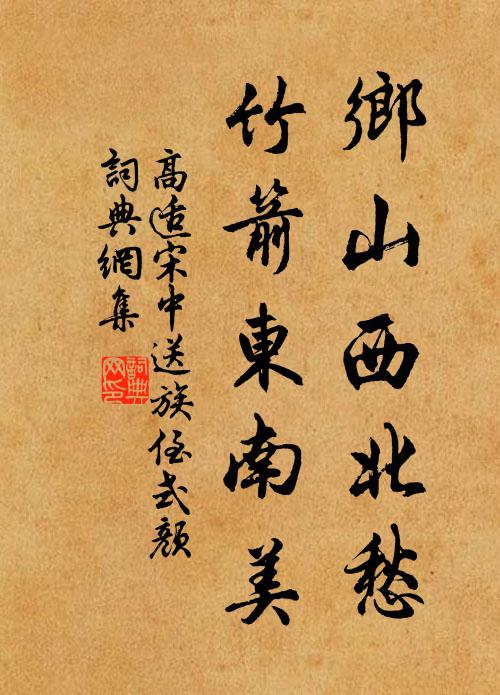 鄉山西北愁
竹箭東南美
高适宋中送族侄式顏
詞典網集
詞典
網印